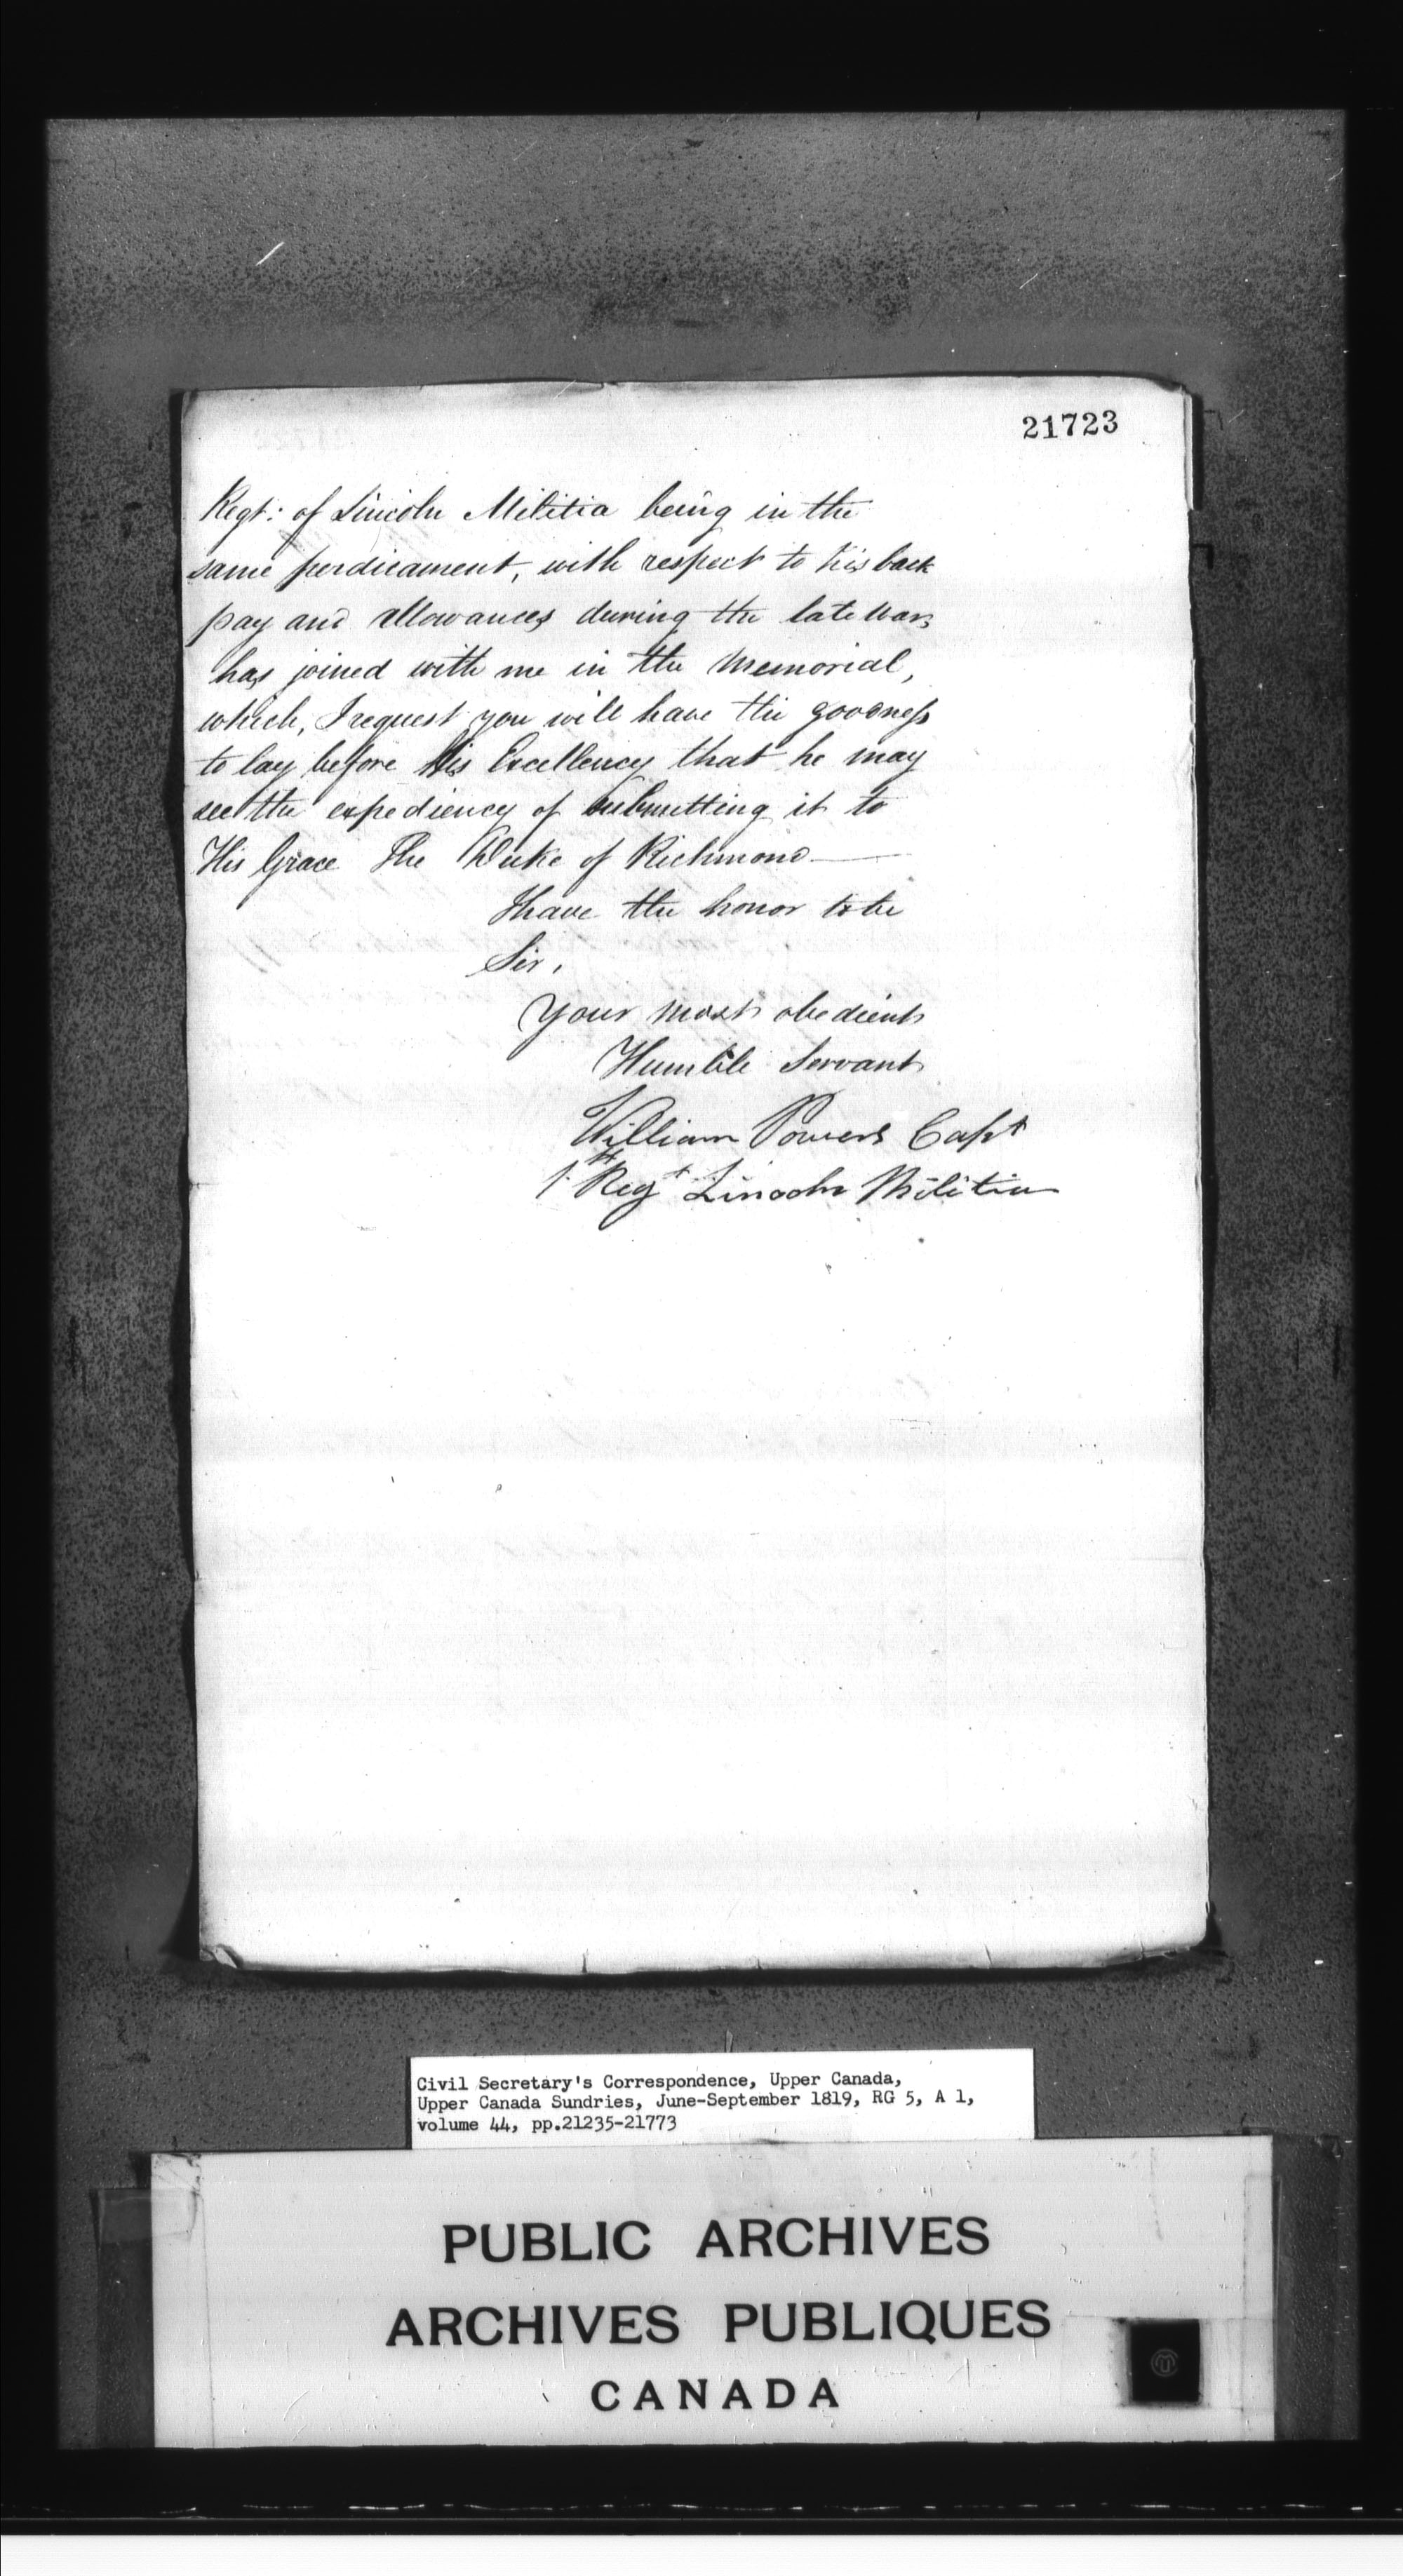 21723
Regt: of Lincoln Militia being in the
same perdicament, with respect to his back
pay and allowances during the late War,
has joined with me in the Memorial,
which, I request you will have the goodness
to lay before His Excellency that he may
see the expediency of submitting it to
His Grace The Duke of Richmond —
I have the honor to be
Sir,
Your most obedient
Humble Servant
William Powers Capt
1st Regt Lincoln Militia
Civil Secretary's Correspondence, Upper Canada,
Upper Canada Sundries, June-September 1819, RG 5, A 1,
volume 44, pp.21235-21773
PUBLIC ARCHIVES
ARCHIVES PUBLIQUES
CANADA